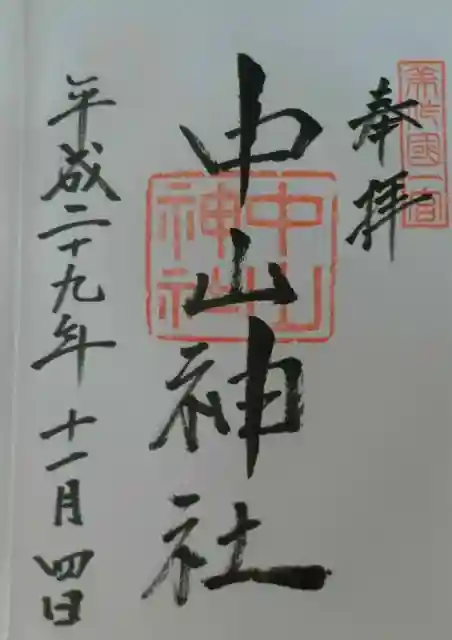 奉拝
美作國一宮
中山神社
中山神社
平成二十九年 十一月 四日